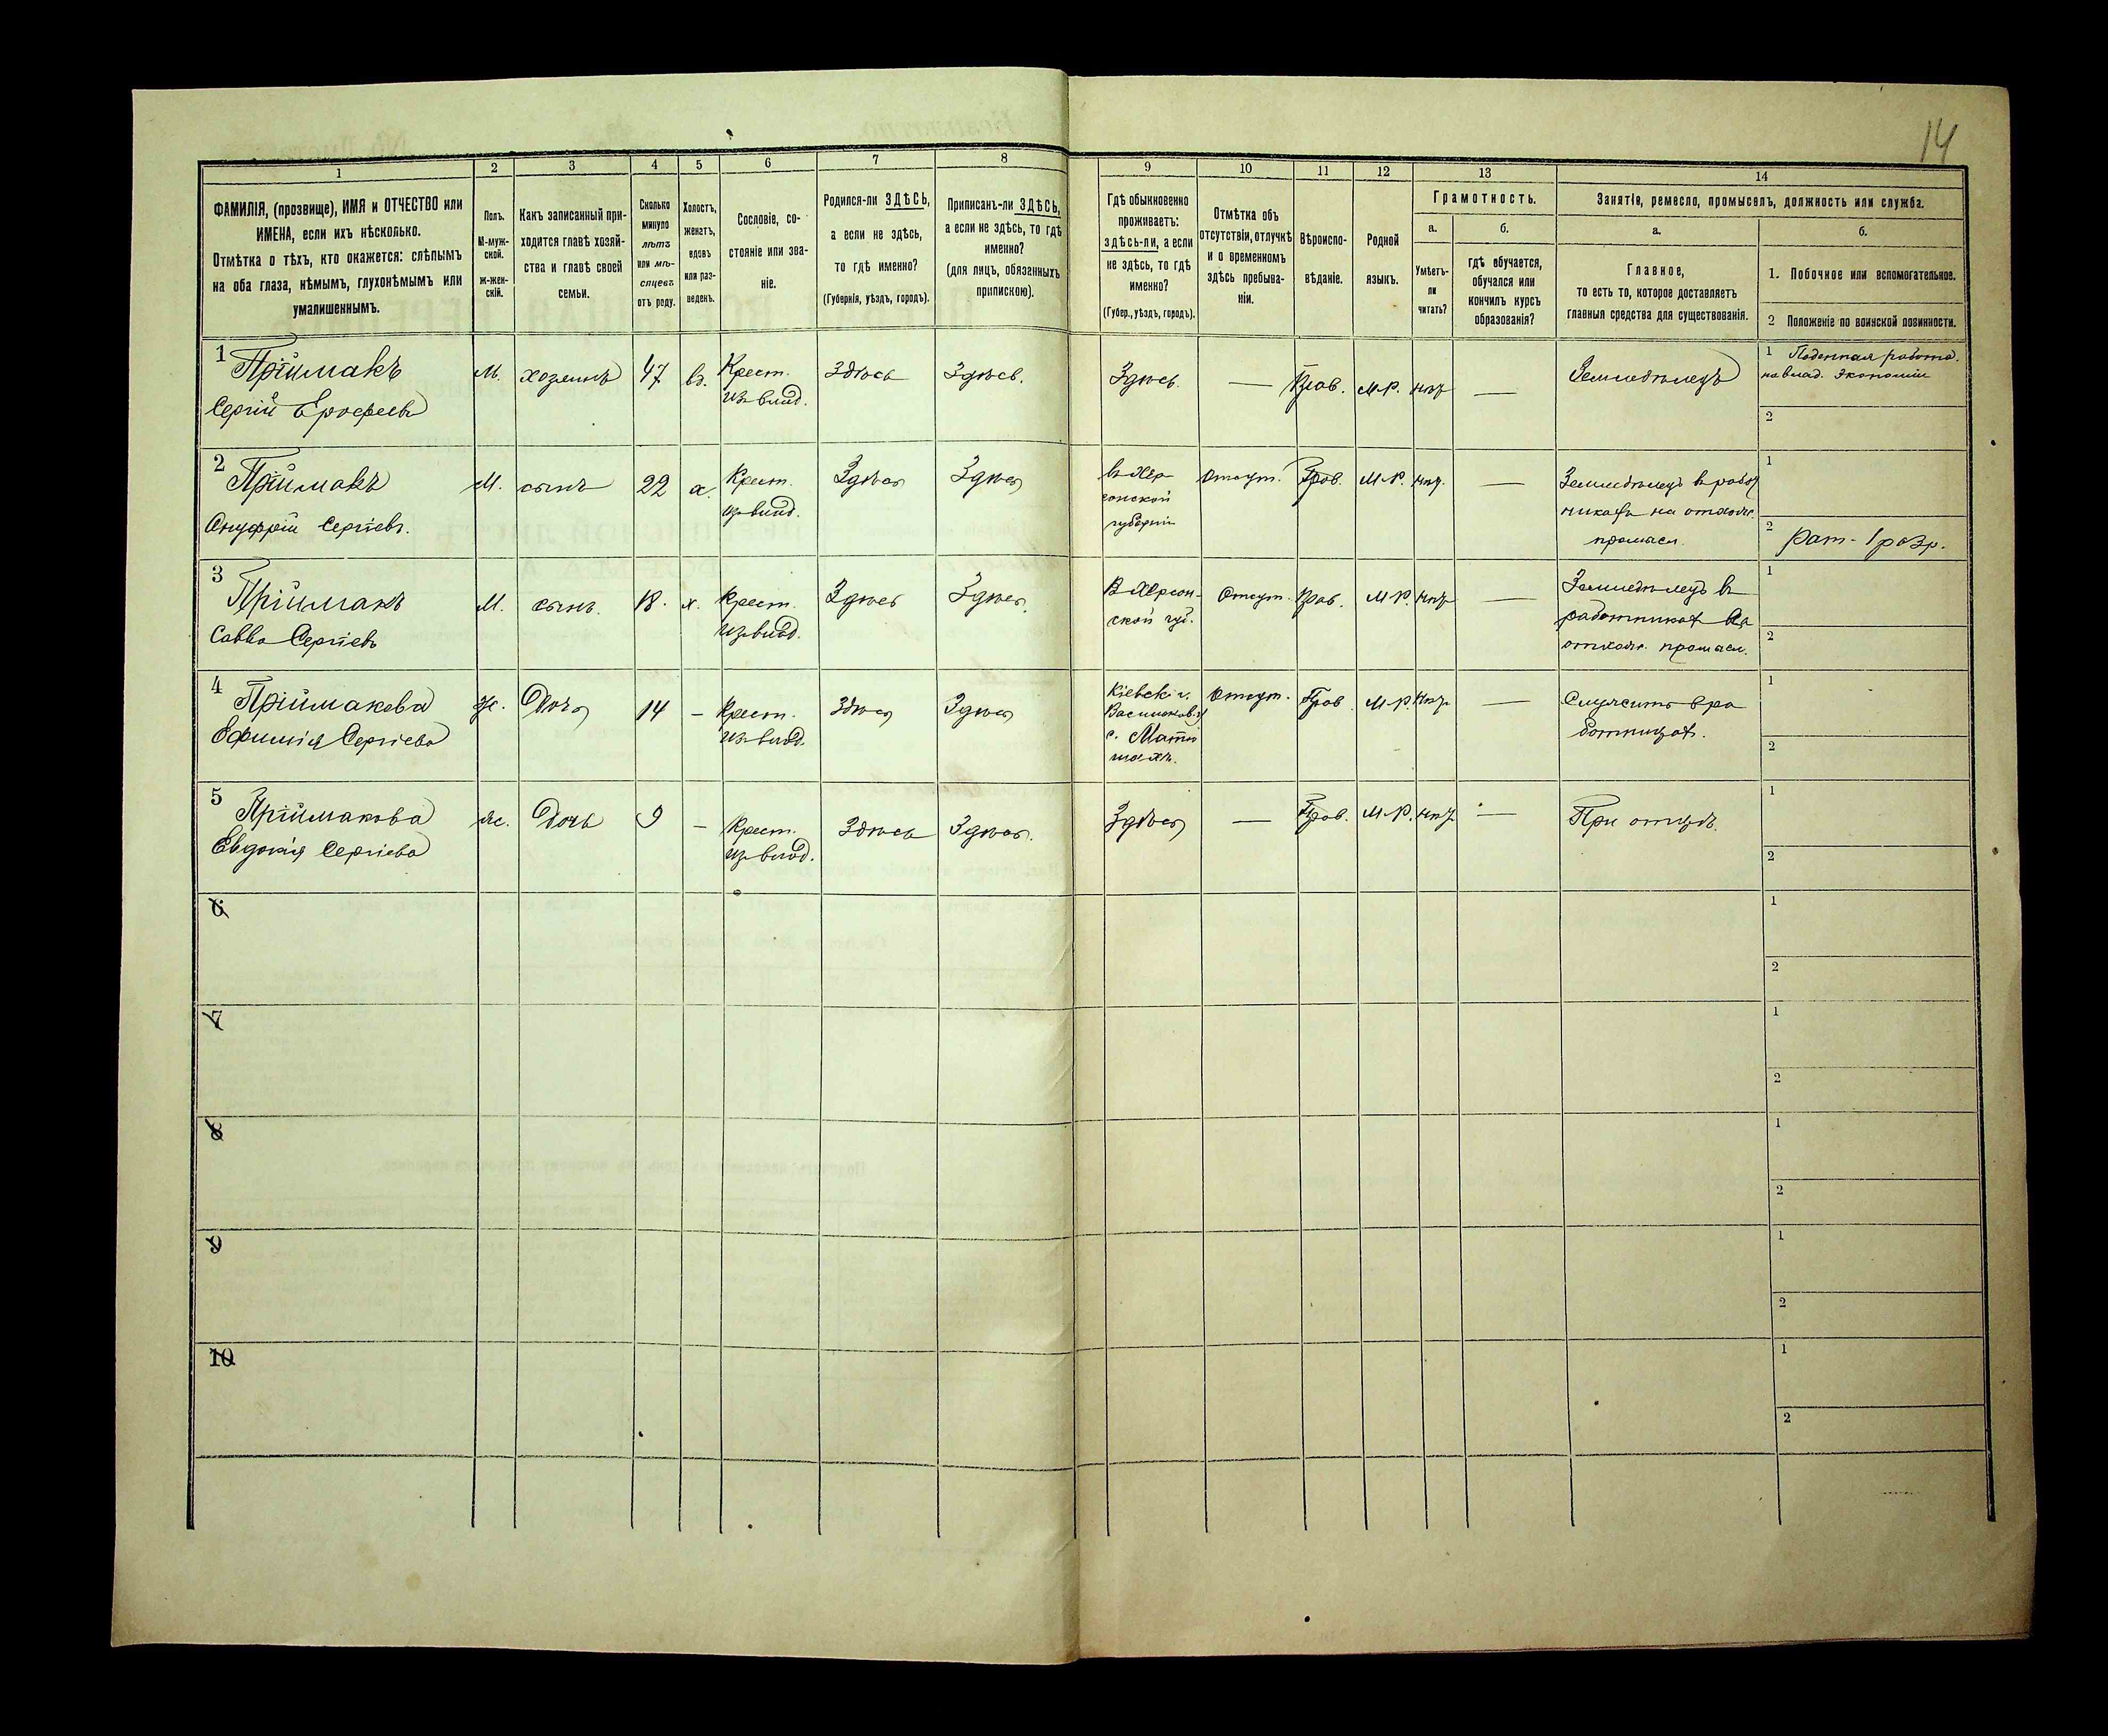 14
1 2 3 4 5 6 7 8 9 10 11 12 13 14
ФАМИЛІЯ, (прозвище), ИМЯ и ОТЧЕСТВО или
ИМЕНА, если ихъ нѣсколько.
Отмѣтка о тѣхъ, кто окажется: слѣпымъ
на оба глаза, нѣмымъ, глухонѣмымъ или
умалишеннымъ.
Полъ.
М-муж-
ской.
ж-жен-
скій.
Какъ записанный при-
ходится главѣ хозяй-
ства и главѣ своей
семьи.
Сколько
минуло
лѣтъ
или мѣ-
сяцевъ
отъ роду.
Холостъ,
женатъ,
вдовъ
или раз-
веденъ.
Сословіе, со-
стояніе или зва-
ніе.
Родился-ли ЗДѢСЬ,
а если не здѣсь,
то гдѣ именно?
(Губернія, уѣздъ, городъ).
Приписанъ-ли ЗДѢСЬ,
а если не здѣсь, то гдѣ
именно?
(для лицъ, обязанныхъ
припискою).
Гдѣ обыкновенно
проживаетъ:
здѣсь-ли, а если
не здѣсь, то гдѣ
именно?
(Губер., уѣздъ, городъ).
Отмѣтка объ
отсутствіи, отлучкѣ
и о временномъ
здѣсь пребыва-
ніи.
Вѣроиспо-
вѣданіе.
Родной
языкъ.
Грамотность.
а.
Умѣетъ-
ли
читать?
б.
гдѣ обучается,
обучался или
кончилъ курсъ
образованія?
Занятіе, ремесло, промыселъ, должность или служба.
а.
Главное,
то есть то, которое доставляетъ
главныя средства для существованія.
б.
1. Побочное или вспомогательное.
2 Положеніе по воинской повинности.
1 Пріймакъ
Сергій Ерофеевъ
М.
хозяинъ
47
вд.
Крест.
из влад.
Здѣсь
Здѣсь.
Здѣсь.
—
Прав.
М.Р.
нѣтъ
—
Земледѣлецъ
1 Поденная работа.
на влад. экономіи
2
2 Пріймакъ
Онуфрій Сергіевъ.
М.
сынъ
22
х.
Крест.
из влад.
Здѣсь
Здѣсь
въ Хер
сонской
губерніи
Отсут.
Прав.
М.Р.
нѣт.
—
Земледѣлецъ в работ
никахъ на отхож.
промысл.
1
2 Рат- 1 разр.
3 Пріймакъ
Савва Сергіевъ
М.
сынъ.
18.
х.
Крест.
из влад.
Здѣсь
Здѣсь.
В Херсон-
ской губ.
Отсут.
Прав.
М.Р.
нѣтъ
—
Земледѣлецъ в
работниках на
отхож. промысл.
1
2
4 Пріймакова
Ефимія Сергіева
Ж.
Дочь
14
—
Крест.
из влад.
Здѣсь
Здѣсь
Кіевск. г.
Васильков. у
с.
Отсут.
Прав.
М.Р.
нѣт.
—
Служитъ в ра
ботницах.
1
2
5 Пріймакова
Евдокія Сергіева
Ж.
Дочь
9
—
Крест.
из влад.
Здѣсь
Здѣсь.
Здѣсь
—
Прав.
М.Р.
нѣт.
—
При отцѣ.
1
2
6
1
2
7
1
2
8
1
2
9
1
2
10
1
2